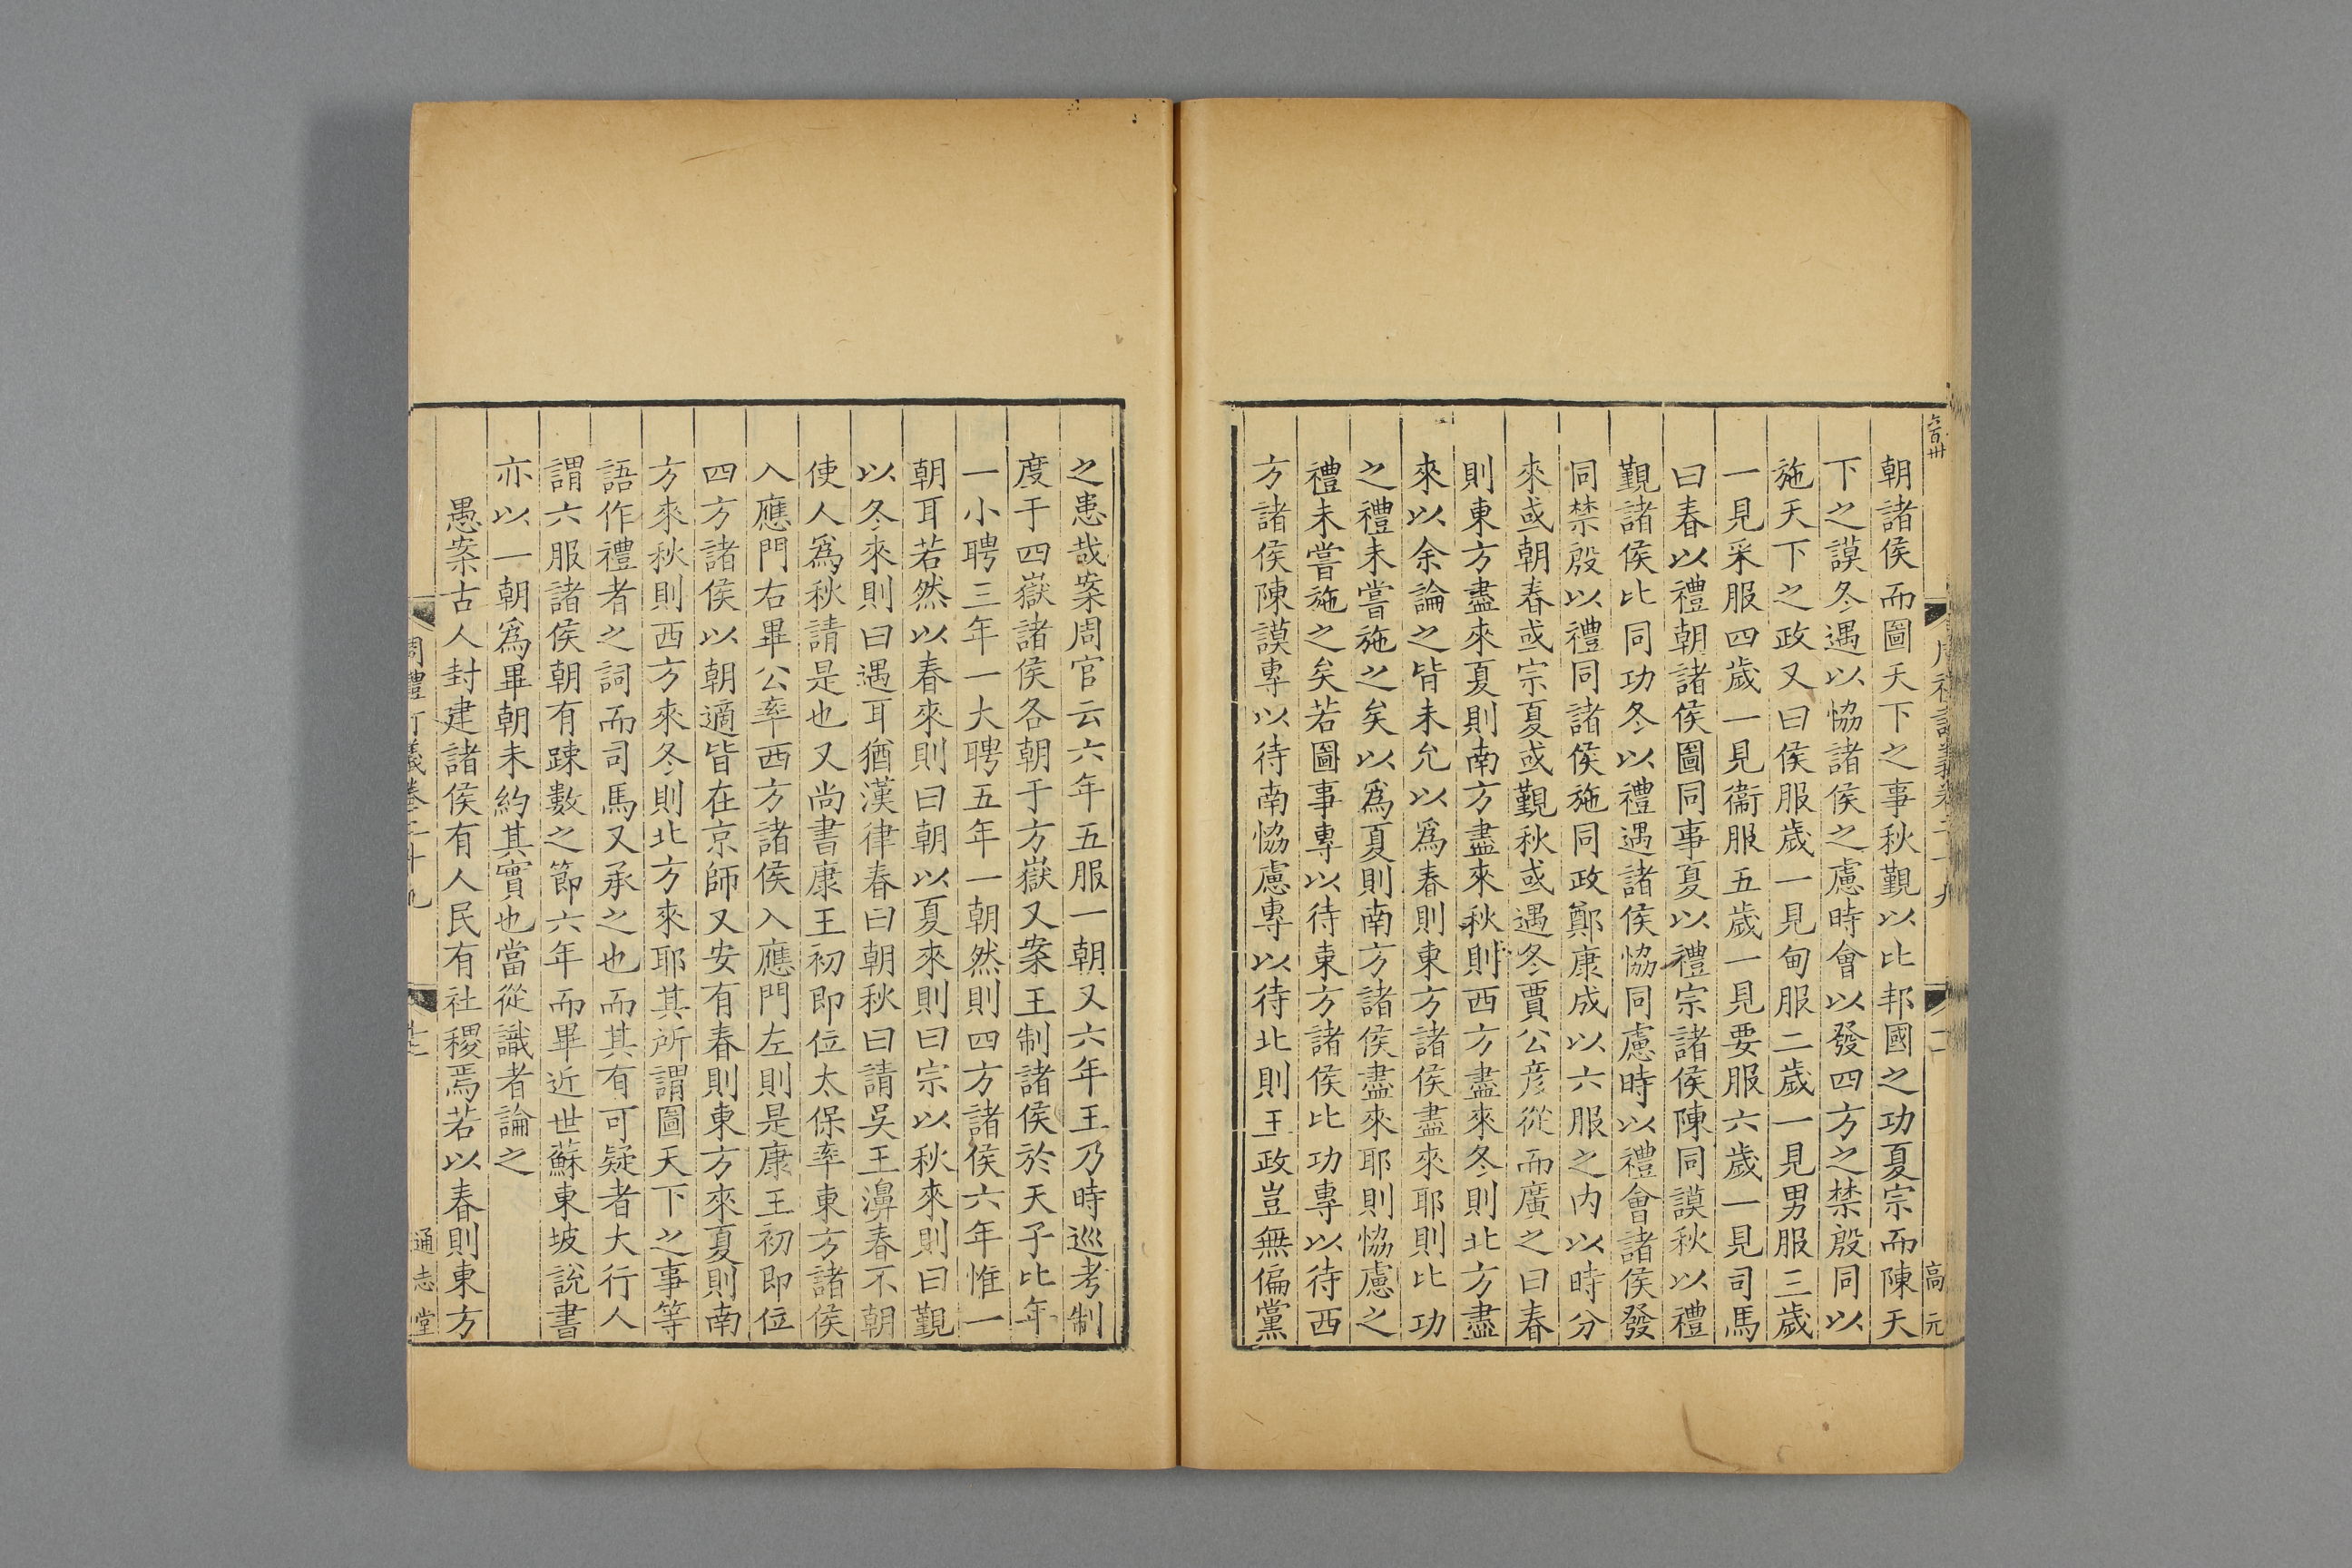 朝諸侯而圖天下之事秋覲以比邦國之功夏宗而陳天
下之謨冬遇以恊諸侯之慮時會以發四方之禁殷同以
施天下之政又曰侯服歲一見甸服二歲一見男服三歲
一見采服四歲一見衞服五歲一見要服六歲一見司馬
曰春以禮朝諸侯圖同事夏以禮宗諸侯陳同謨秋以禮
覲諸侯比同功冬以禮遇諸侯恊同慮時以禮會諸侯發
同禁殷以禮同諸侯施同政鄭康成以六服之内以時分
來或朝春或宗夏或覲秋或遇冬賈公彦從而廣之曰春
則東方盡來夏則南方盡來秋則西方盡來冬則北方盡
來以余論之皆未允以爲春則東方諸侯盡來耶則比功
之禮未嘗施之矣以爲夏則南方諸侯盡來耶則恊慮之
禮未嘗施之矣若圖事專以待東方諸侯比功專以待西
方諸侯陳謨專以待南恊慮專以待北則王政豈無偏黨
之患哉案周官云六年五服一朝又六年王乃時巡考制
度于四嶽諸侯各朝于方嶽又案王制諸侯於天子比年
一小聘三年一大聘五年一朝然則四方諸侯六年惟一
朝耳若然以春來則曰朝以夏來則曰宗以秋來則曰覲
以冬來則曰遇耳猶漢律春曰朝秋曰請吳王濞春不朝
使人爲秋請是也又尚書康王初即位太保率東方諸侯
入應門右畢公率西方諸侯入應門左則是康王初即位
四方諸侯以朝適皆在京師又安有春則東方來夏則南
方來秋則西方來冬則北方來耶其所謂圖天下之事等
語作禮者之詞而司馬又承之也而其有可疑者大行人
謂六服諸侯朝有踈數之節六年而畢近世蘇東坡說書
亦以一朝爲畢朝未約其實也當從識者論之
愚案古人封建諸侯有人民有社稷焉若以春則東方
高元
通志堂